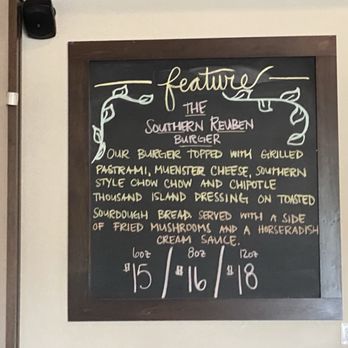 feature
THE
SOUTHERN REUBEN
BURGER
OUR BURGER TOPPED WITH GRILLED
PASTRAMI, MUENSTER CHEESE, SOUTHERN
STYLE CHOW CHOW AND CHIPOTLE
THOUSAND ISLAND DRESSING ON TOASTED
SOURDOUGH BREAD. SERVED WITH A SIDE
OF FRIED MUSHROOMS AND A HORSERADISH
CREAM SAUCE.
6oz 8oz 12oz
$15 / $16 / $18